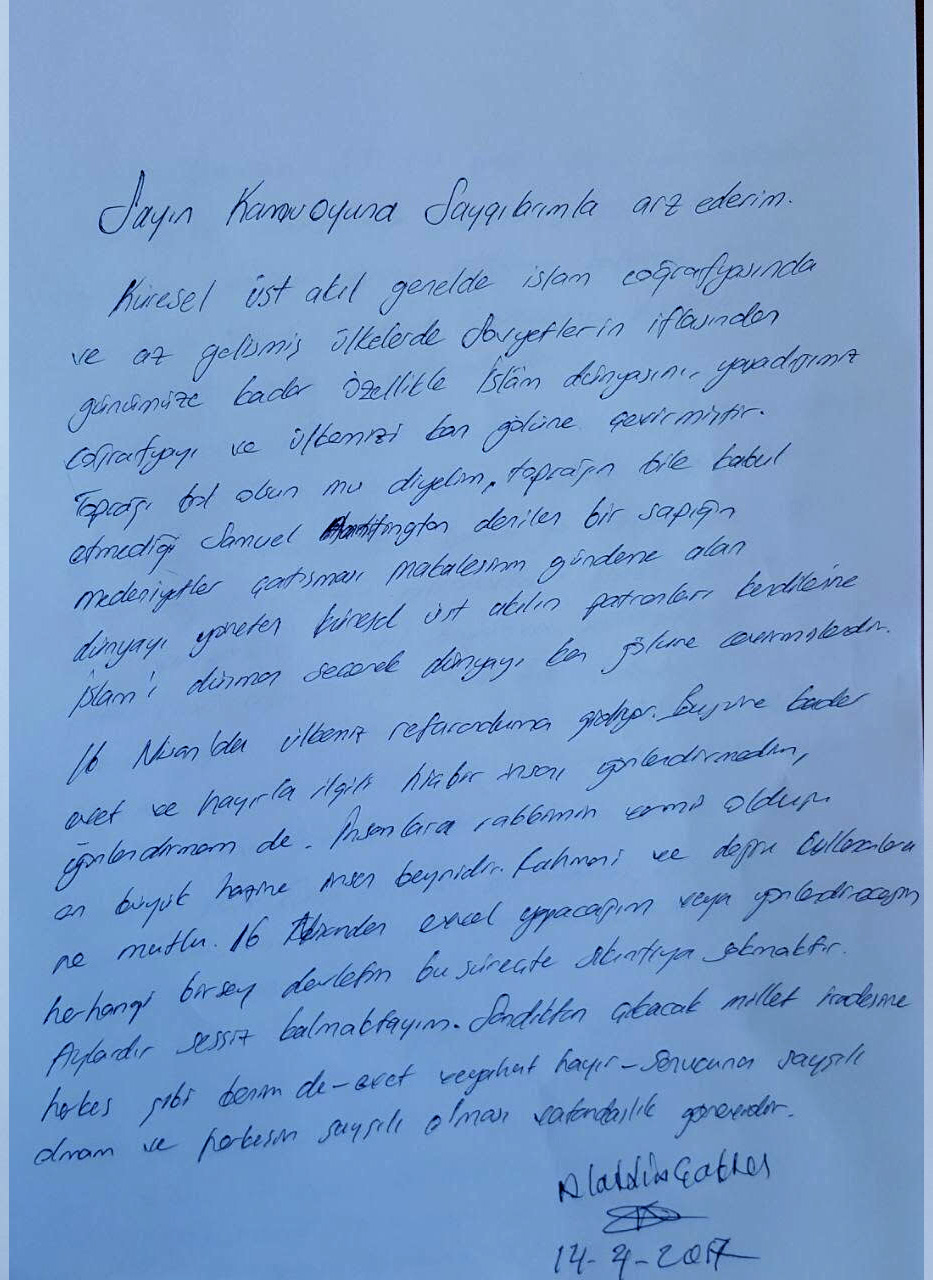 Sayın Kamuoyuna Saygılarımla arz ederim.
Küresel üst akıl genelde islam coğrafyasında
ve az gelişmiş ülkelerde Sovyetlerin iflasından
günümüze kadar özellikle İslâm dünyasını, yaşadığımız
coğrafyayı ve ülkemizi kan gölüne çevirmiştir.
Toprağı bol olsun mu diyelim, toprağın bile kabul
etmediği Samuel Hantington denilen bir sapığın
medeniyetler çatışması makalesinin gündeme alan
dünyayı yöneten küresel üst akılın patronları kendilerine
İslam'ı düşman seçerek dünyayı kan gölüne çevirmişlerdir.
16 Nisan'da ülkemiz refaranduma gidiyor. Bugüne kadar
evet ve hayırla ilgili hiçbir insanı yönlendirmedim,
yönlendirmem de. İnsanlara rabbimin vermiş olduğu
en büyük hazine insan beynidir. Rahmani ve doğru kullananlara
ne mutlu. 16 Nisandan evvel yapacağım veya yönlendireceğim
herhangi birşey devletin bu süreçte sıkıntıya sokmaktır.
Aylardır sessiz kalmaktayım. Sandıktan çıkacak millet iradesine
herkes gibi benim de - evet veyahut hayır - sonucuna saygılı
olmam ve herkesin saygılı olması vatandaşlık görevidir.
Alaaddin Çakıcı
14-4-2017